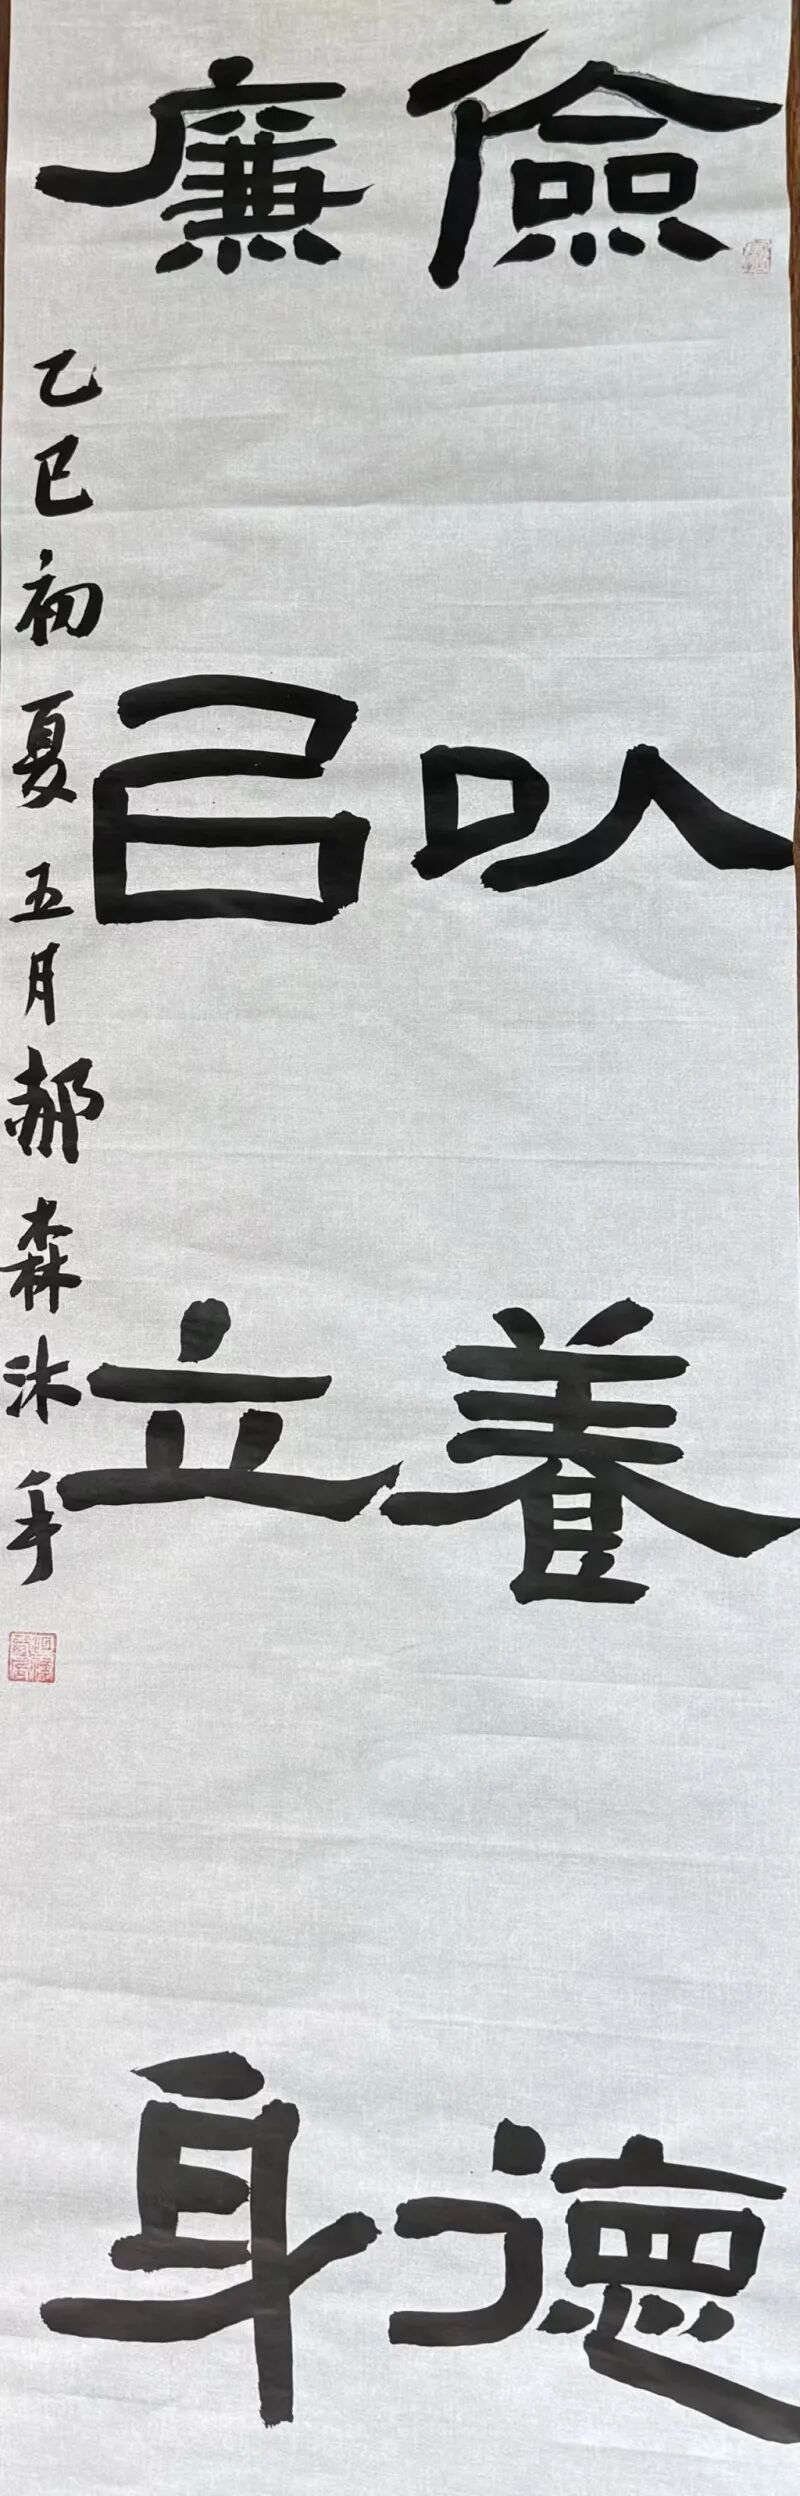 儉以養德
廉㠯立身
乙巳初夏五月郝森沐手